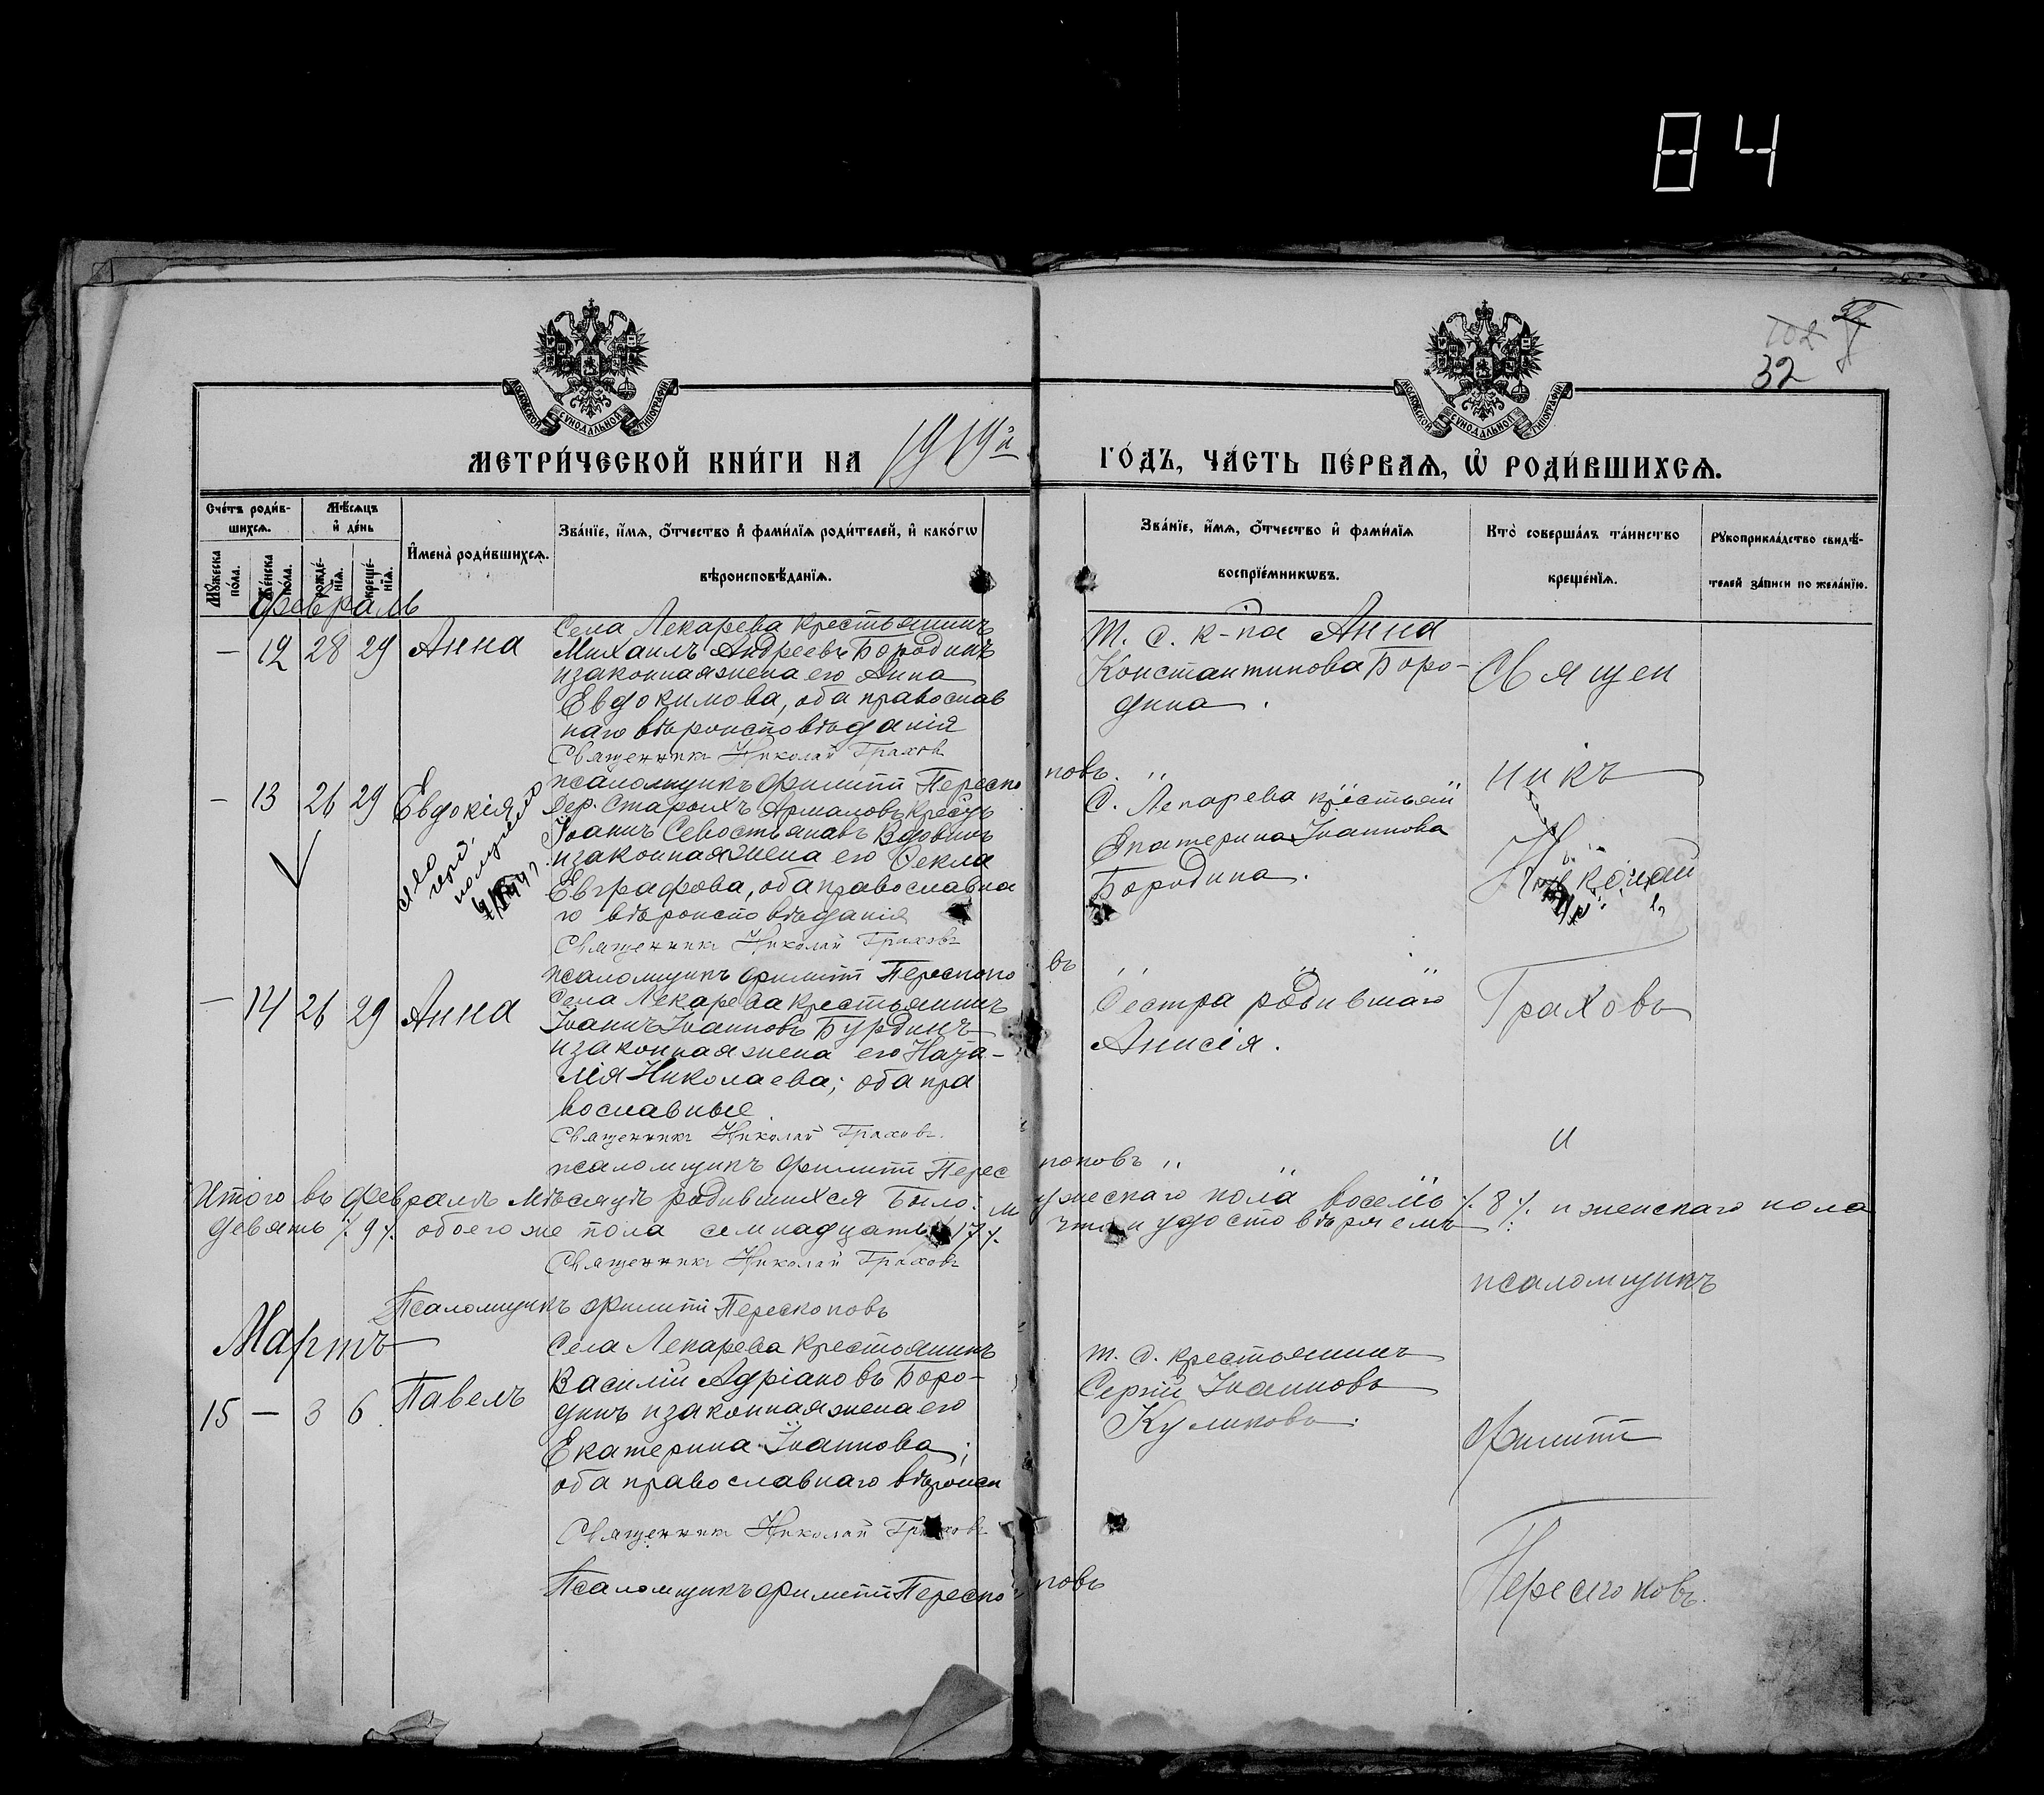 84
102
32
МОСКОВСКОЙ СУНОДАЛЬНОЙ ТИПОГРАФІИ
МОСКОВСКОЙ СУНОДАЛЬНОЙ ТИПОГРАФІИ
МЕТРИ́ЧЕСКОЙ КНИ́ГИ НА 1919й ГО́ДЪ, ЧА́СТЬ ПЕ́РВАѦ, Ѿ РОДИ́ВШИХСѦ.
Сче́тъ роди́в-
шихсѧ.
Мѣ́сѧцъ
и҆ де́нь
Мꙋ́жеска по́ла.
Же́нска по́ла.
рожде́-
нїѧ.
креще́-
нїѧ.
И҆мена̀ роди́вшихсѧ.
Зва́нїе, и҆́мѧ, ѻ҆́тчество и҆ фами́лїѧ роди́телей, и҆ како́гѡ
вѣроисповѣ́данїѧ.
Зва́нїе, и҆́мѧ, ѻ҆́тчество и҆ фами́лїѧ
воспрїе́мникѡвъ.
Кто̀ соверша́лъ та́инство
креще́нїѧ.
Рꙋкоприкла́дство свидѣ́-
телей за́писи по жела́нїю.
Февраль
— 12 28 29 Анна
Села Лекарева крестьянинъ
Михаилъ Андреевъ Бородинъ
и законная жена его Анна
Евдокимова, оба православ
наго вѣроисповѣданія
Священникъ Николай Граховъ
псаломщикъ Филиппъ Перескоповъ. „
Т. с. к-на Анна
Константинова Боро-
дина.
Священ
никъ
Николай
Граховъ
и
псаломщикъ
Филиппъ
Перескоповъ.
— 13 26 29 Евдокія
Дер. Старыхъ Армаловъ крест
Іоаннъ Севостьяновъ Вдовинъ
и законная жена его Фекла
Евграфова, оба православна
го вѣроисповѣданія
Священникъ Николай Граховъ
псаломщикъ Филиппъ Перескоповъ „ „ „
С. Лекарева крестьян
Екатерина Іоаннова
Бородина.
— 14 26 29 Анна
Села Лекарева крестьянинъ
Іоаннъ Іоанновъ Бурдинъ
и законная жена его Ната-
лія Николаева; оба пра
вославные.
Священникъ Николай Граховъ.
псаломщикъ Филиппъ Перескоповъ „
Сестра родившаго
Анисія.
Итого въ февралѣ мѣсяцѣ родившихся было: мужескаго пола восемь ./. 8 ./. и женскаго пола
девять ./. 9 ./. обоего же пола семнадцать ./. 17 ./. что и удостовѣряемъ:
Священникъ Николай Граховъ
Псаломщикъ Филиппъ Перескоповъ
Мартъ
15 — 3 6 Павелъ
Села Лекарева крестьянинъ
Василій Адріановъ Боро-
динъ и законная жена его
Екатерина Іоаннова;
оба православнаго вѣроисп
Священникъ Николай Граховъ
Псаломщикъ Филиппъ Перескоповъ
т. с. крестьянинъ
Сергій Іоанновъ
Куликовъ.